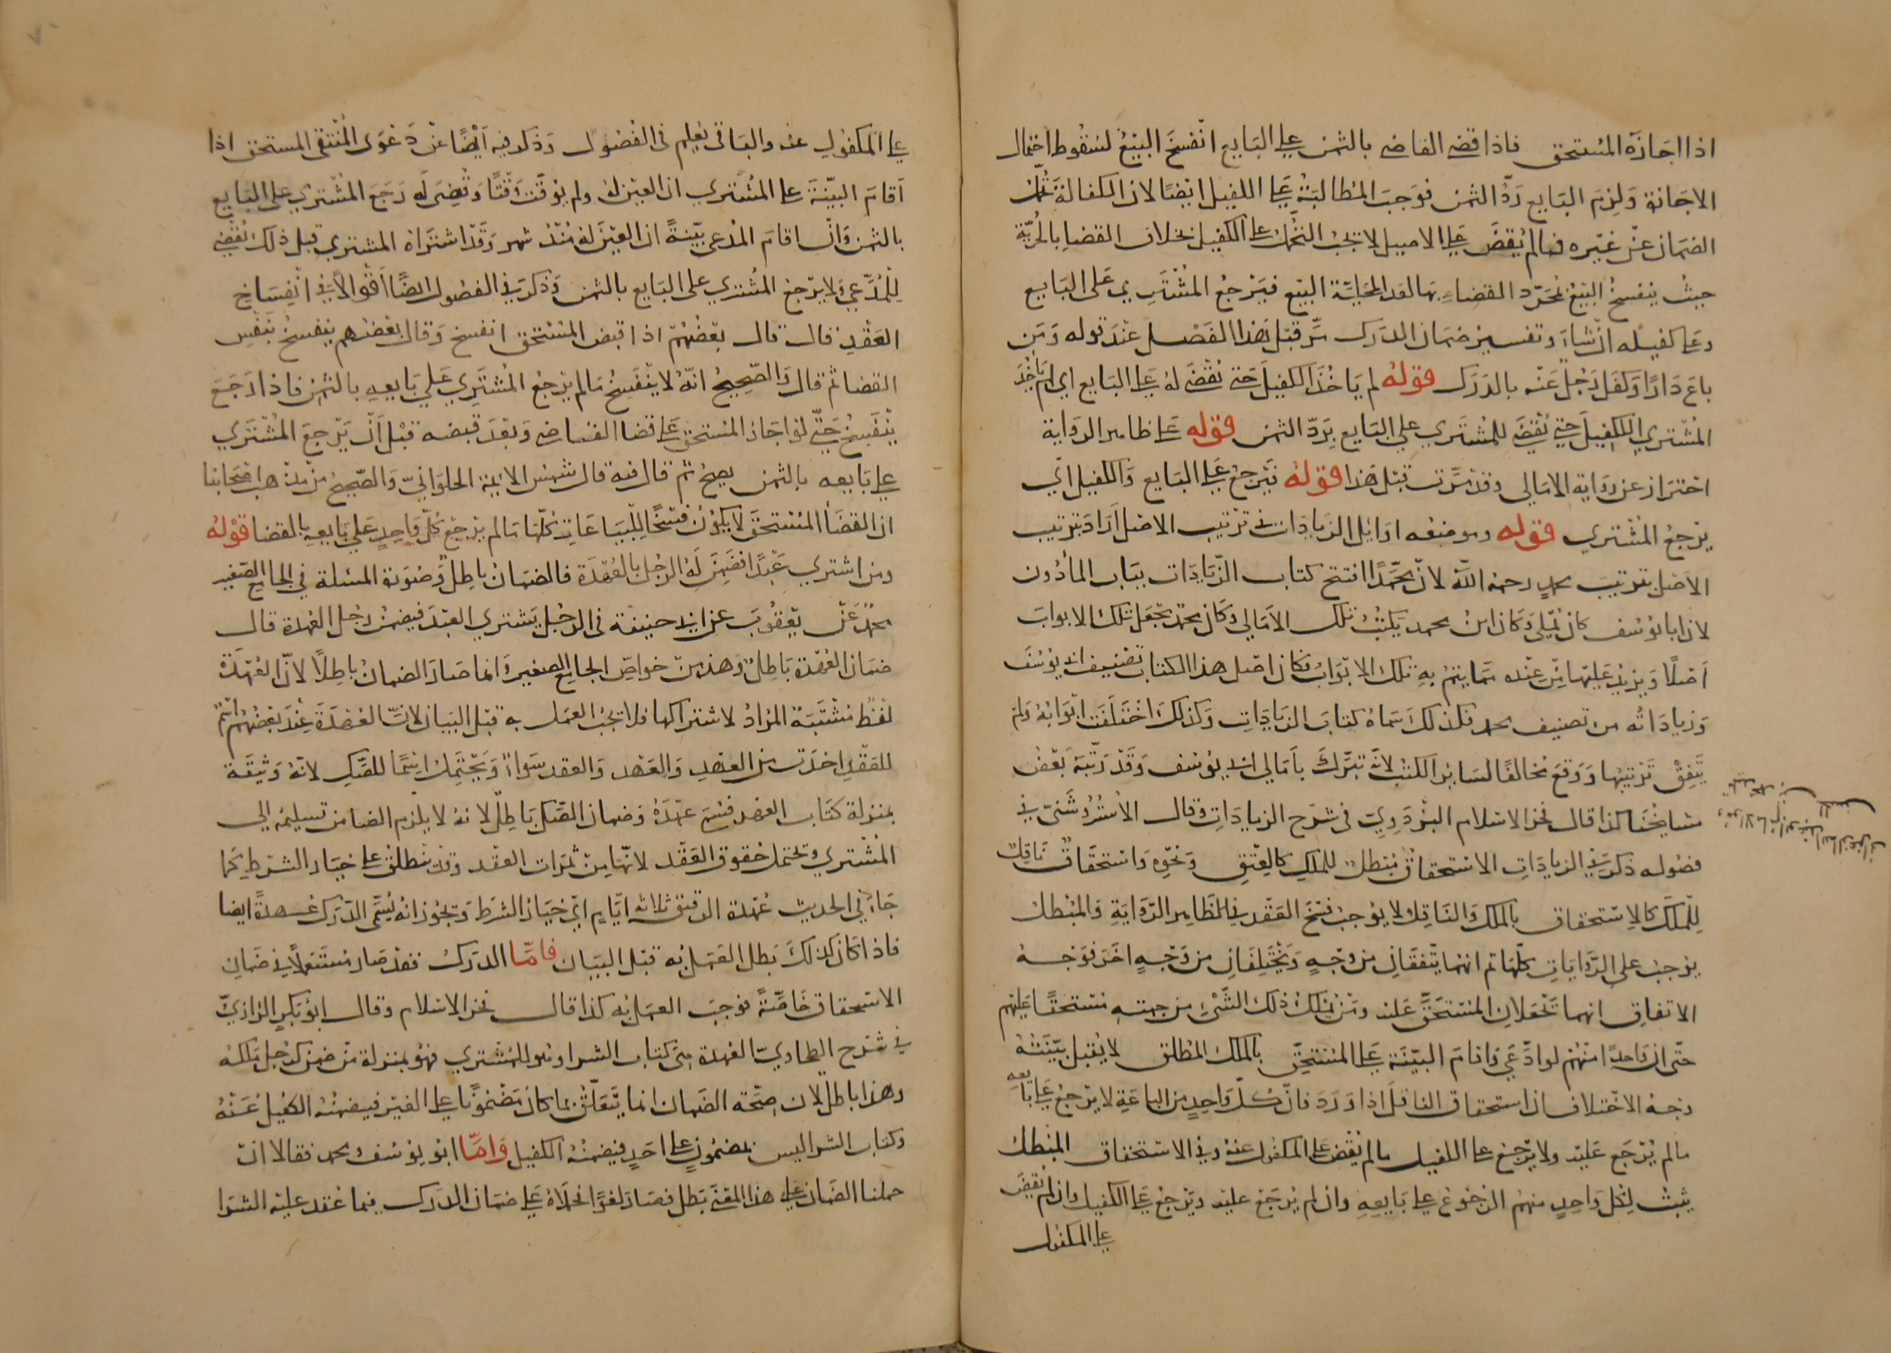 اذا اجازه المستحق فاذا قضى القاضي بالثمن على البايع انفسخ البيع لسقوط احتمال
الاجازة ولزم البايع رد الثمن فوجب المطالبة على الكفيل ايضا لان الكفالة تحمل
الضمان عن غيره فما لم يقض على الاصيل لا يجب التحمل على الكفيل بخلاف القضا بالحرية
حيث ينفسخ البيع بمجرد القضاء بها لعدم محلية البيع فيرجع المشتري على البايع
وعلى كفيله ان شاء وتفسير ضمان الدرك مر قبل هذا الفصل عند قوله ومن
باع دارا وكفل رجل عنه بالدرك قوله لم ياخذ الكفيل حتى يقضى له على البايع اي لم ياخذ
المشتري الكفيل حتى يقضى للمشتري على البايع برد الثمن قوله على ظاهر الرواية
احتراز عن رواية الامالي وقد مرت قبل هذا قوله فيرجع على البايع والكفيل اي
يرجع المشتري قوله وموضعه اوايل الزيادات في ترتيب الاصل اراد بترتيب
الاصل ترتيب محمد رحمه الله لان محمدا افتتح كتاب الزيادات بباب الماذون
لان ابا يوسف كان يملي وكان ابن محمد يكتب تلك الامالي وكان محمد يجعل تلك الابواب
اصلا ويزيد عليها من عنده مما يتم به تلك الابواب فكان اصل هذا الكتاب تصنيف ابي يوسف
وزياداته من تصنيف محمد فلذلك سماه كتاب الزيادات وكذلك اختلفت ابوابه ولم
يتفق ترتيبها ووقع مخالفا لساير الكتب لانه تبرك بامالي ابي يوسف وقد رتبه بعض
مشايخنا كذا قال فخر الاسلام البزدوي في شرح الزيادات وقال الاستروشني في
فصوله ذكر في الزيادات الاستحقاق مبطل للملك كالعتق ونحوه واستحقاق ناقل
للملك كالاستحقاق بالملك والناقل لا يوجب فسخ العقد في الظاهر الرواية والمبطل
يوجب على الروايات كلها ثم انهما يتفقان من وجه ويختلفان من وجه اخر فوجه
الاتفاق انهما تجعلان المستحق عليه ومن يملك ذلك الشئ من جهته مستحقا عليهم
حتى ان واحدا منهم لو ادعى واقام البينة على المستحق بالملك المطلق لا يقبل بينته
وجه الاختلاف ان استحقاق الناقل اذا ورد فان كل واحد من الباعة لا يرجع على بايعه
ما لم يرجع عليه ولا يرجع على الكفيل ما لم يقض على المكفول عنه وفي الاستحقاق المبطل
يثبت لكل واحد منهم الرجوع على بايعه وان لم يرجع عليه ويرجع على الكفيل وان لم يقض
على المكفول
على المكفول عنه والباقي يعلم في الفصول وذكر فيه ايضا عن دعوى المنتقى المستحق اذا
اقام البينة على المشتري ان العين له ولم يوقت وقتا وقضي له رجع المشتري على البايع
بالثمن وان اقام المدعي بينة ان العين له منذ شهر وقد اشتراه المشتري قبل ذلك يقضى
للمدعي ولا يرجع المشتري على البايع بالثمن وذكر في الفصول ايضا اقوالا في انفساخ
العقد فقال قال بعضهم اذا قبض المستحق انفسخ وقال بعضهم ينفسخ بنفس
القضا ثم قال والصحيح انه لا ينفسخ ما لم يرجع المشتري على بايعه بالثمن فاذا رجع
ينفسخ حتى لو اجاز المستحق على قضا القاضي وبعد قبضه قبل ان يرجع المشتري
على بايعه بالثمن يصح ثم قال فيه قال شمس الايمة الحلواني والصحيح من مذهب اصحابنا
ان القضا المستحق لا يكون فسخا للبياعات كلها ما لم يرجع كل واحد على بايعه بالقضا قوله
ومن اشترى عبدا فضمن له الرجل بالعهدة فالضمان باطل وصورة المسئلة في الجامع الصغير
محمد عن يعقوب عن ابي حنيفة في الرجل يشتري العبد فيضمن رجل العهدة قال
ضمان العهدة باطل وهذه من خواص الجامع الصغير وانما صار الضمان باطلا لان العهدة
لفظ مشتبه المراد لاشتراكها فلا يجب العمل به قبل البيان لان العهدة عند بعضهم اسم
للعقد اخذت من العهد والعهد والعقد سواء ويحتمل اسما للصك لانه وثيقة
بمنزلة كتاب العهد فسمي عهدة وضمان الصك باطل لانه لا يلزم الضامن تسليمه الى
المشتري وتحتمل حقوق العقد لانها من ثمرات العقد وقد تنطلق على خيار الشرط كما
جاء في الحديث عهدة الرقيق ثلاثة ايام اي خيار الشرط ويجوز انه يسمى الدرك عهدة ايضا
فاذا كان كذلك بطل العمل به قبل البيان فاما الدرك فقد صار مستعملا في ضمان
الاستحقاق خاصة فوجب العمل به كذا قال فخر الاسلام وقال ابو بكر الرازي
في شرح الطحاوي العهدة هي كتاب الشرا وهو للمشتري فهو بمنزلة من ضمن لرجل ملكه
وهذا باطل لان صحة الضمان انما يتعلق بما كان مضمونا على الغير فيضمنه الكفيل عنه
وكتاب الشرا ليس بمضمون على احد فيضمنه الكفيل واما ابو يوسف ومحمد فقالا ان
حملنا الضمان على هذا المعنى بطل فصار لغوا فحملاه على ضمان الدرك فيما عقد عليه الشرا